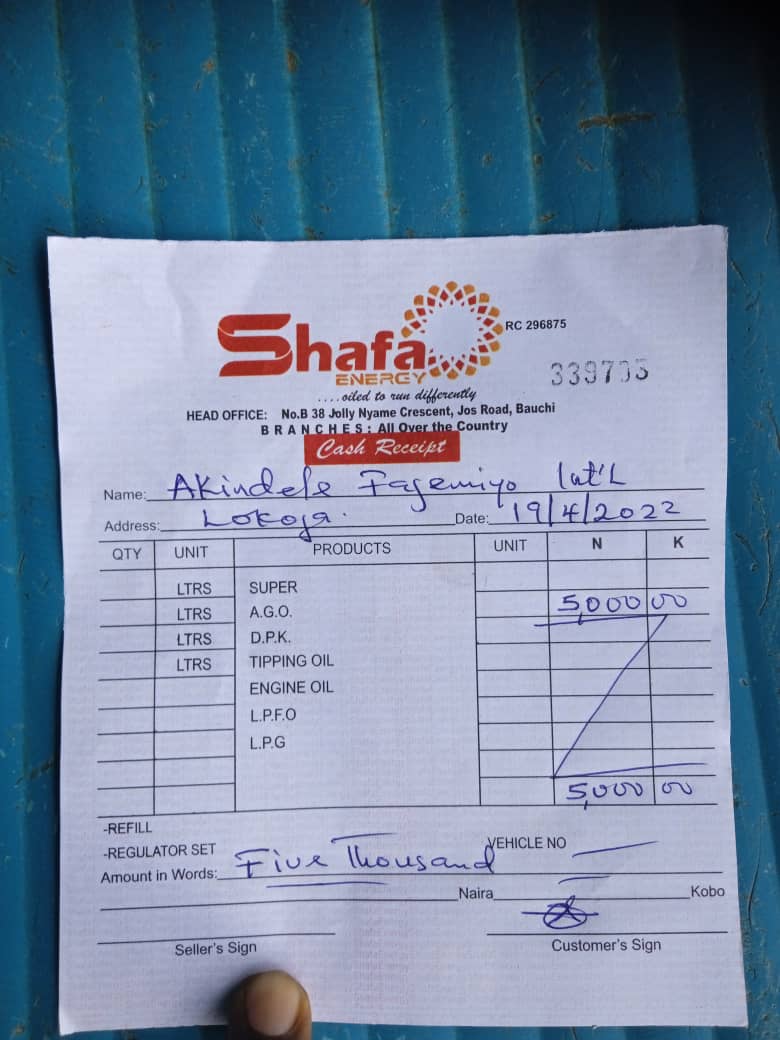 Shafa
ENERGY
RC 296875
....oiled to run differently
HEAD OFFICE: No.B 38 Jolly Nyame Crescent, Jos Road, Bauchi
BRANCHES: All Over the Country
Cash Receipt
Name: Akindele Fagemiyo Int'L
Address: Lokoja. Date: 19/4/2022
QTY UNIT PRODUCTS UNIT N K
LTRS SUPER
LTRS A.G.O. 5,000 00
LTRS D.P.K.
LTRS TIPPING OIL
ENGINE OIL
L.P.F.O
L.P.G
5,000 00
-REFILL
-REGULATOR SET VEHICLE NO
Amount in Words: Five Thousand
Naira Kobo
Seller's Sign Customer's Sign